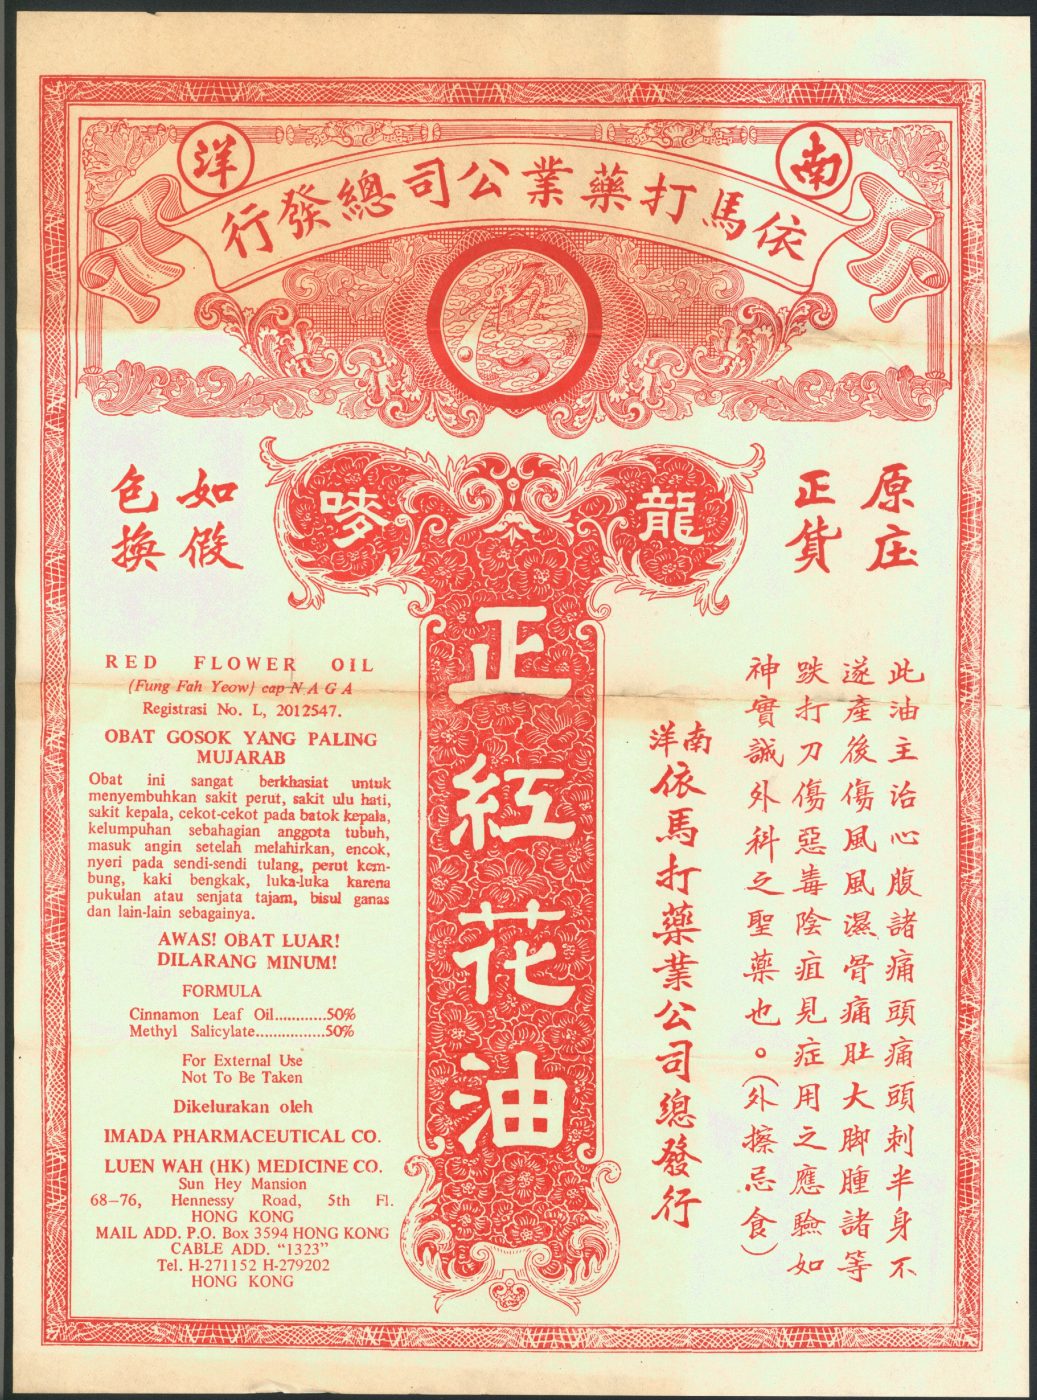 南洋
依馬打藥業公司總發行
龍嘜
原庄
正貨
如假
包換
正紅花油
此油主治心腹諸痛頭痛頭刺半身不
遂產後傷風風濕骨痛肚大脚腫諸等
跌打刀傷惡毒陰疽見症用之應驗如
神實誠外科之聖藥也。(外擦忌食)
南洋
依馬打藥業公司總發行
RED FLOWER OIL
(Fung Fah Yeow) cap NAGA
Registrasi No. L, 2012547.
OBAT GOSOK YANG PALING
MUJARAB
Obat ini sangat berkhasiat untuk
menyembuhkan sakit perut, sakit ulu hati,
sakit kepala, cekot-cekot pada batok kepala,
kelumpuhan sebahagian anggota tubuh,
masuk angin setelah melahirkan, encok,
nyeri pada sendi-sendi tulang, perut kem-
bung, kaki bengkak, luka-luka karena
pukulan atau senjata tajam, bisul ganas
dan lain-lain sebagainya.
AWAS! OBAT LUAR!
DILARANG MINUM!
FORMULA
Cinnamon Leaf Oil............50%
Methyl Salicylate................50%
For External Use
Not To Be Taken
Dikelurakan oleh
IMADA PHARMACEUTICAL CO.
LUEN WAH (HK) MEDICINE CO.
Sun Hey Mansion
68–76, Hennessy Road, 5th Fl.
HONG KONG
MAIL ADD. P.O. Box 3594 HONG KONG
CABLE ADD. "1323"
Tel. H-271152 H-279202
HONG KONG